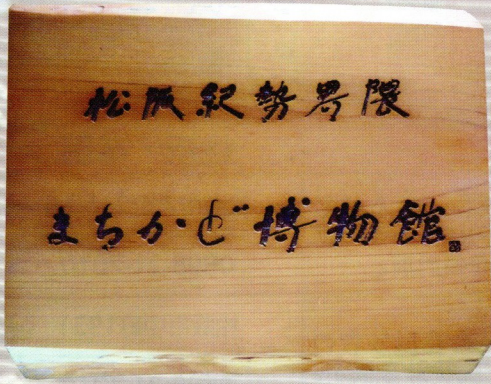 松阪紀勢界隈
まちかど博物館